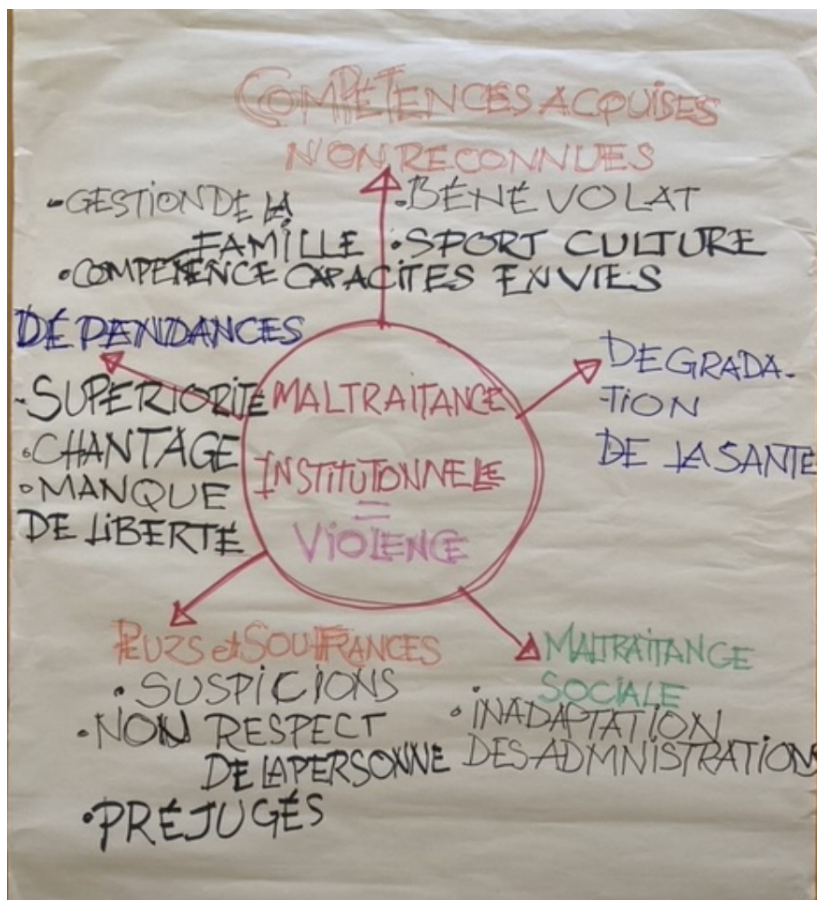 COMPÉTENCES ACQUISES
NON RECONNUES
-GESTION DE LA
FAMILLE
•COMPETENCE CAPACITES ENVIES
•BÉNÉVOLAT
•SPORT CULTURE
DÉPENDANCES
-SUPERIORITE
•CHANTAGE
•MANQUE
DE LIBERTÉ
MALTRAITANCE
INSTITUTIONNELLE
=
VIOLENCE
DEGRADA-
TION
DE LA SANTE
PEURS et SOUFFRANCES
•SUSPICIONS
•NON RESPECT
DE LA PERSONNE
•PRÉJUGÉS
MALTRAITANCE
SOCIALE
•INADAPTATION
DES ADMNISTRATIONS